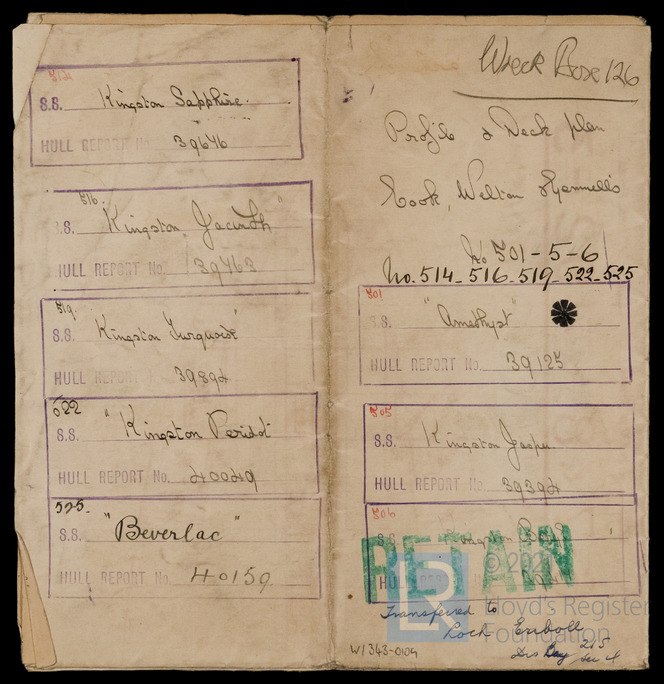 514
S.S. Kingston Sapphire.
HULL REPORT No. 39646
516.
S.S. "Kingston Jacinth"
HULL REPORT No. 39763
519.
S.S. Kingston Turquoise
HULL REPORT No. 39894
522
S.S. "Kingston Peridot
HULL REPORT No. 40049
525.
S.S. "Beverlac"
HULL REPORT No. 40159
Wreck Box 126
Profile & Deck plan
Cook, Welton & Gemmell's
No 501-5-6
No. 514-516-519-522-525
501
S.S. "Amethyst"
HULL REPORT No. 39125
505
S.S. Kingston Jasper
HULL REPORT No. 39394
506
S.S. Kingston
HULL REPORT No.
RETAIN
Transferred to
Loch Eriboll
W1343-0109
Lloyd's Register
Foundation